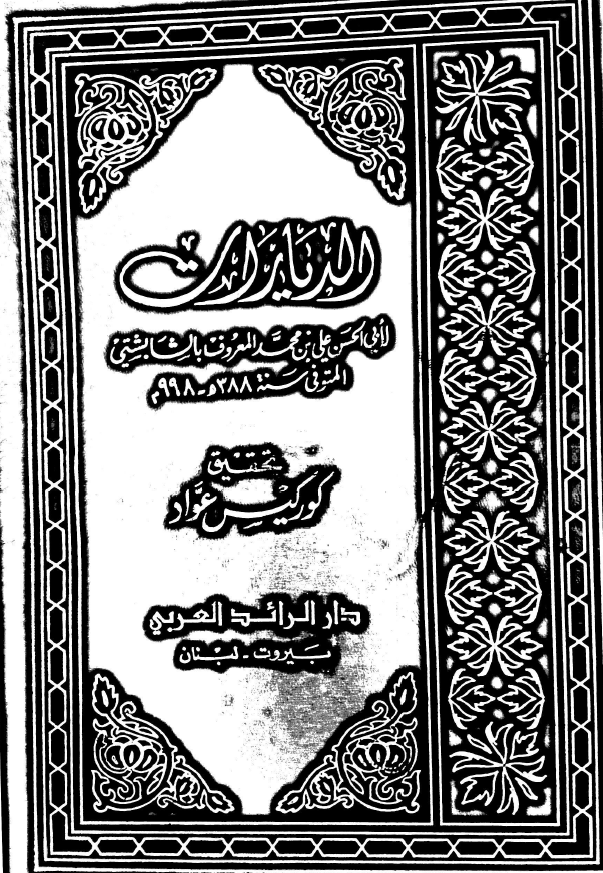 الديارات
لأبي الحسن علي بن محمد المعروف بالشابشتي
المتوفى سنة ٣٨٨ هـ - ٩٩٨ م
تحقيق
كوركيس عواد
دار الرائد العربي
بيروت - لبنان